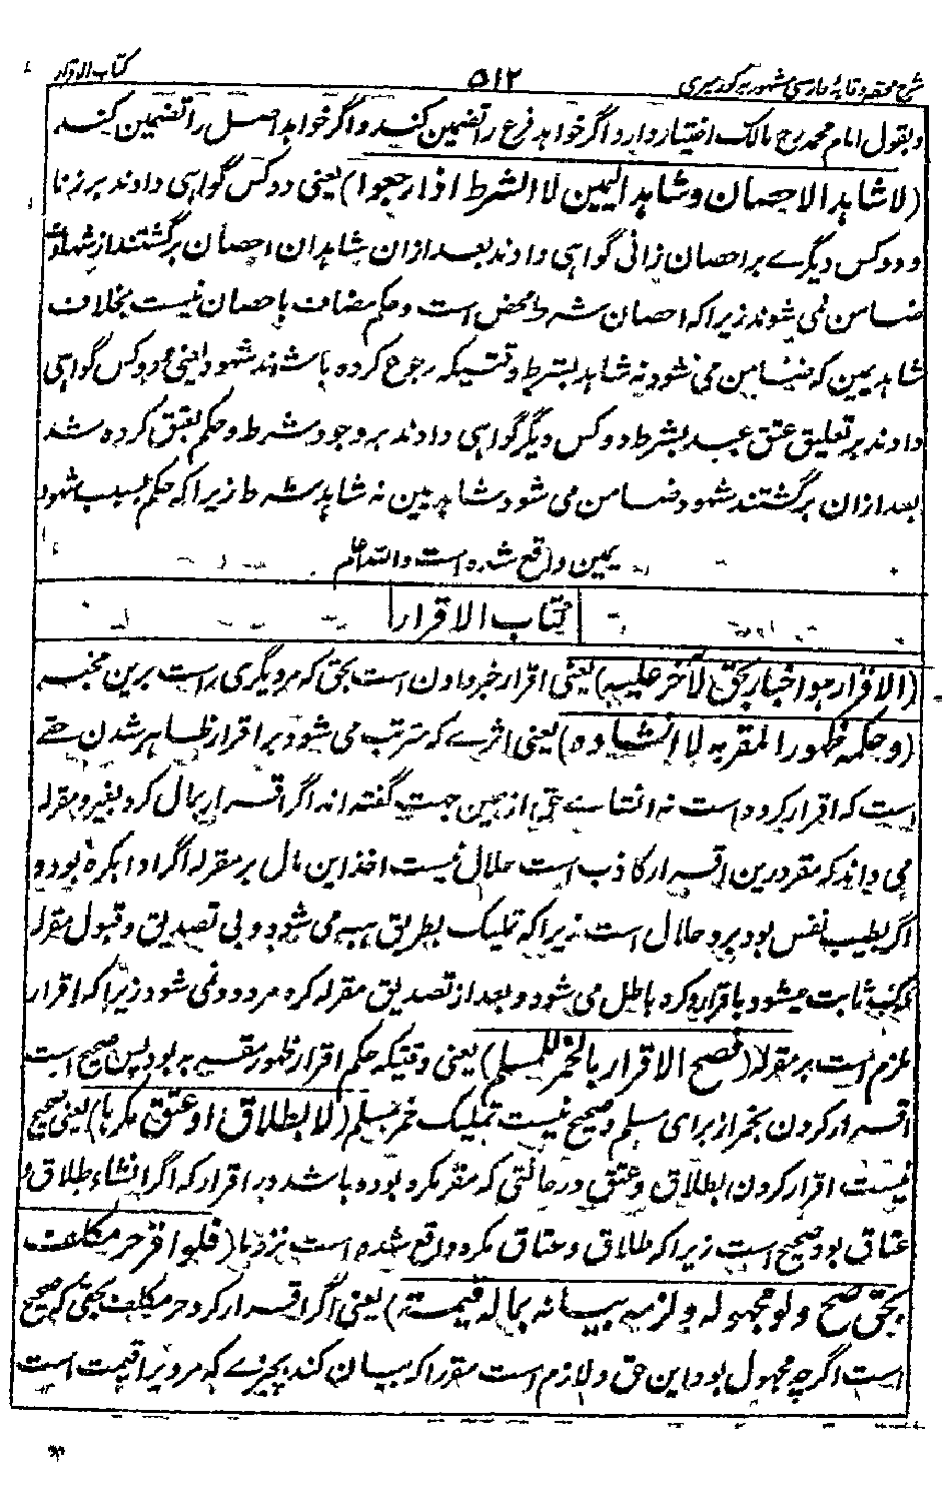 شرح مختصر وقایه فارسی مشهور به کور میری ۵۱۲ کتاب الاقرار
و بقول امام محمد رح مالک اختیار دارد اگر خواهد فرع را تضمین کند و اگر خواهد اصل را تضمین کند
(لا شاهد الاحصان و شاهد الیمین لا الشرط اذا رجعوا) یعنی دو کس گواهی دادند بر زنا
و دو کس دیگرے بر احصان زانی گواهی دادند بعد ازان شاهدان احصان برگشتند از شهادت
ضامن نمی شوند زیرا که احصان شرط محض است و حکم مضاف باحصان نیست بخلاف
شاهد یمین که ضامن می شود نه شاهد بشرط وقتیکه رجوع کرده باشند شهود یعنی دو کس گواهی
دادند بر تعلیق عتق عبد بشرط و دو کس دیگر گواهی دادند بر وجود شرط و حکم بعتق کرده شد
بعد ازان برگشتند شهود ضامن می شود شاهد یمین نه شاهد شرط زیرا که حکم بسبب شهود
یمین واقع شده است والله اعلم
کتاب الاقرار
(الاقرار هو اخبار بحق لآخر علیه) یعنی اقرار خبر دادن است بحق که مر دیگری راست برین مخبر
(و حکمه ظهور المقر به لا انشاءه) یعنی اثرے که مترتب می شود بر اقرار ظاهر شدن حقے
است که اقرار کرده است نه انشاے حق از همین جهت گفته اند اگر اقرار بمال کرد بغیر و مقرله
می داند که مقر درین اقرار کاذب است حلال نیست اخذ این مال بر مقرله اگر ادا بکره بود و
اگر بطیب نفس بود بر و حلال است زیرا که تملیک بطریق هبه می شود و بی تصدیق و قبول مقرله
ثابت میشود باقرار رد کرد باطل می شود و بعد از تصدیق مقرله کرد مردود نمی شود زیرا که اقرار
ملزم است بر مقرله (فصح الاقرار بالخمر للمسلم) یعنی وقتیکه حکم اقرار ظهور مقر به بود پس صحیح است
اقرار کردن بخمر از برای مسلم و صحیح نیست تملیک خمر بمسلم (لا بطلاق او عتق مکرها) یعنی صحیح
نیست اقرار کردن بطلاق و عتق در حالتی که مقر مکره بوده باشد در اقرار که اگر انشاء طلاق و
عتاق بود صحیح است زیرا که طلاق و عتاق مکره واقع شده است نزد ما (فلو اقر حر مکلف
بحق صح ولو مجهولا و لزمه بیانه بما له قیمة) یعنی اگر اقرار کرد حر مکلف بحقی که صحیح
است اگرچه مجهول بود این حق و لازم است مقر را که بیان کند بچیزے که مر ویرا قیمت است